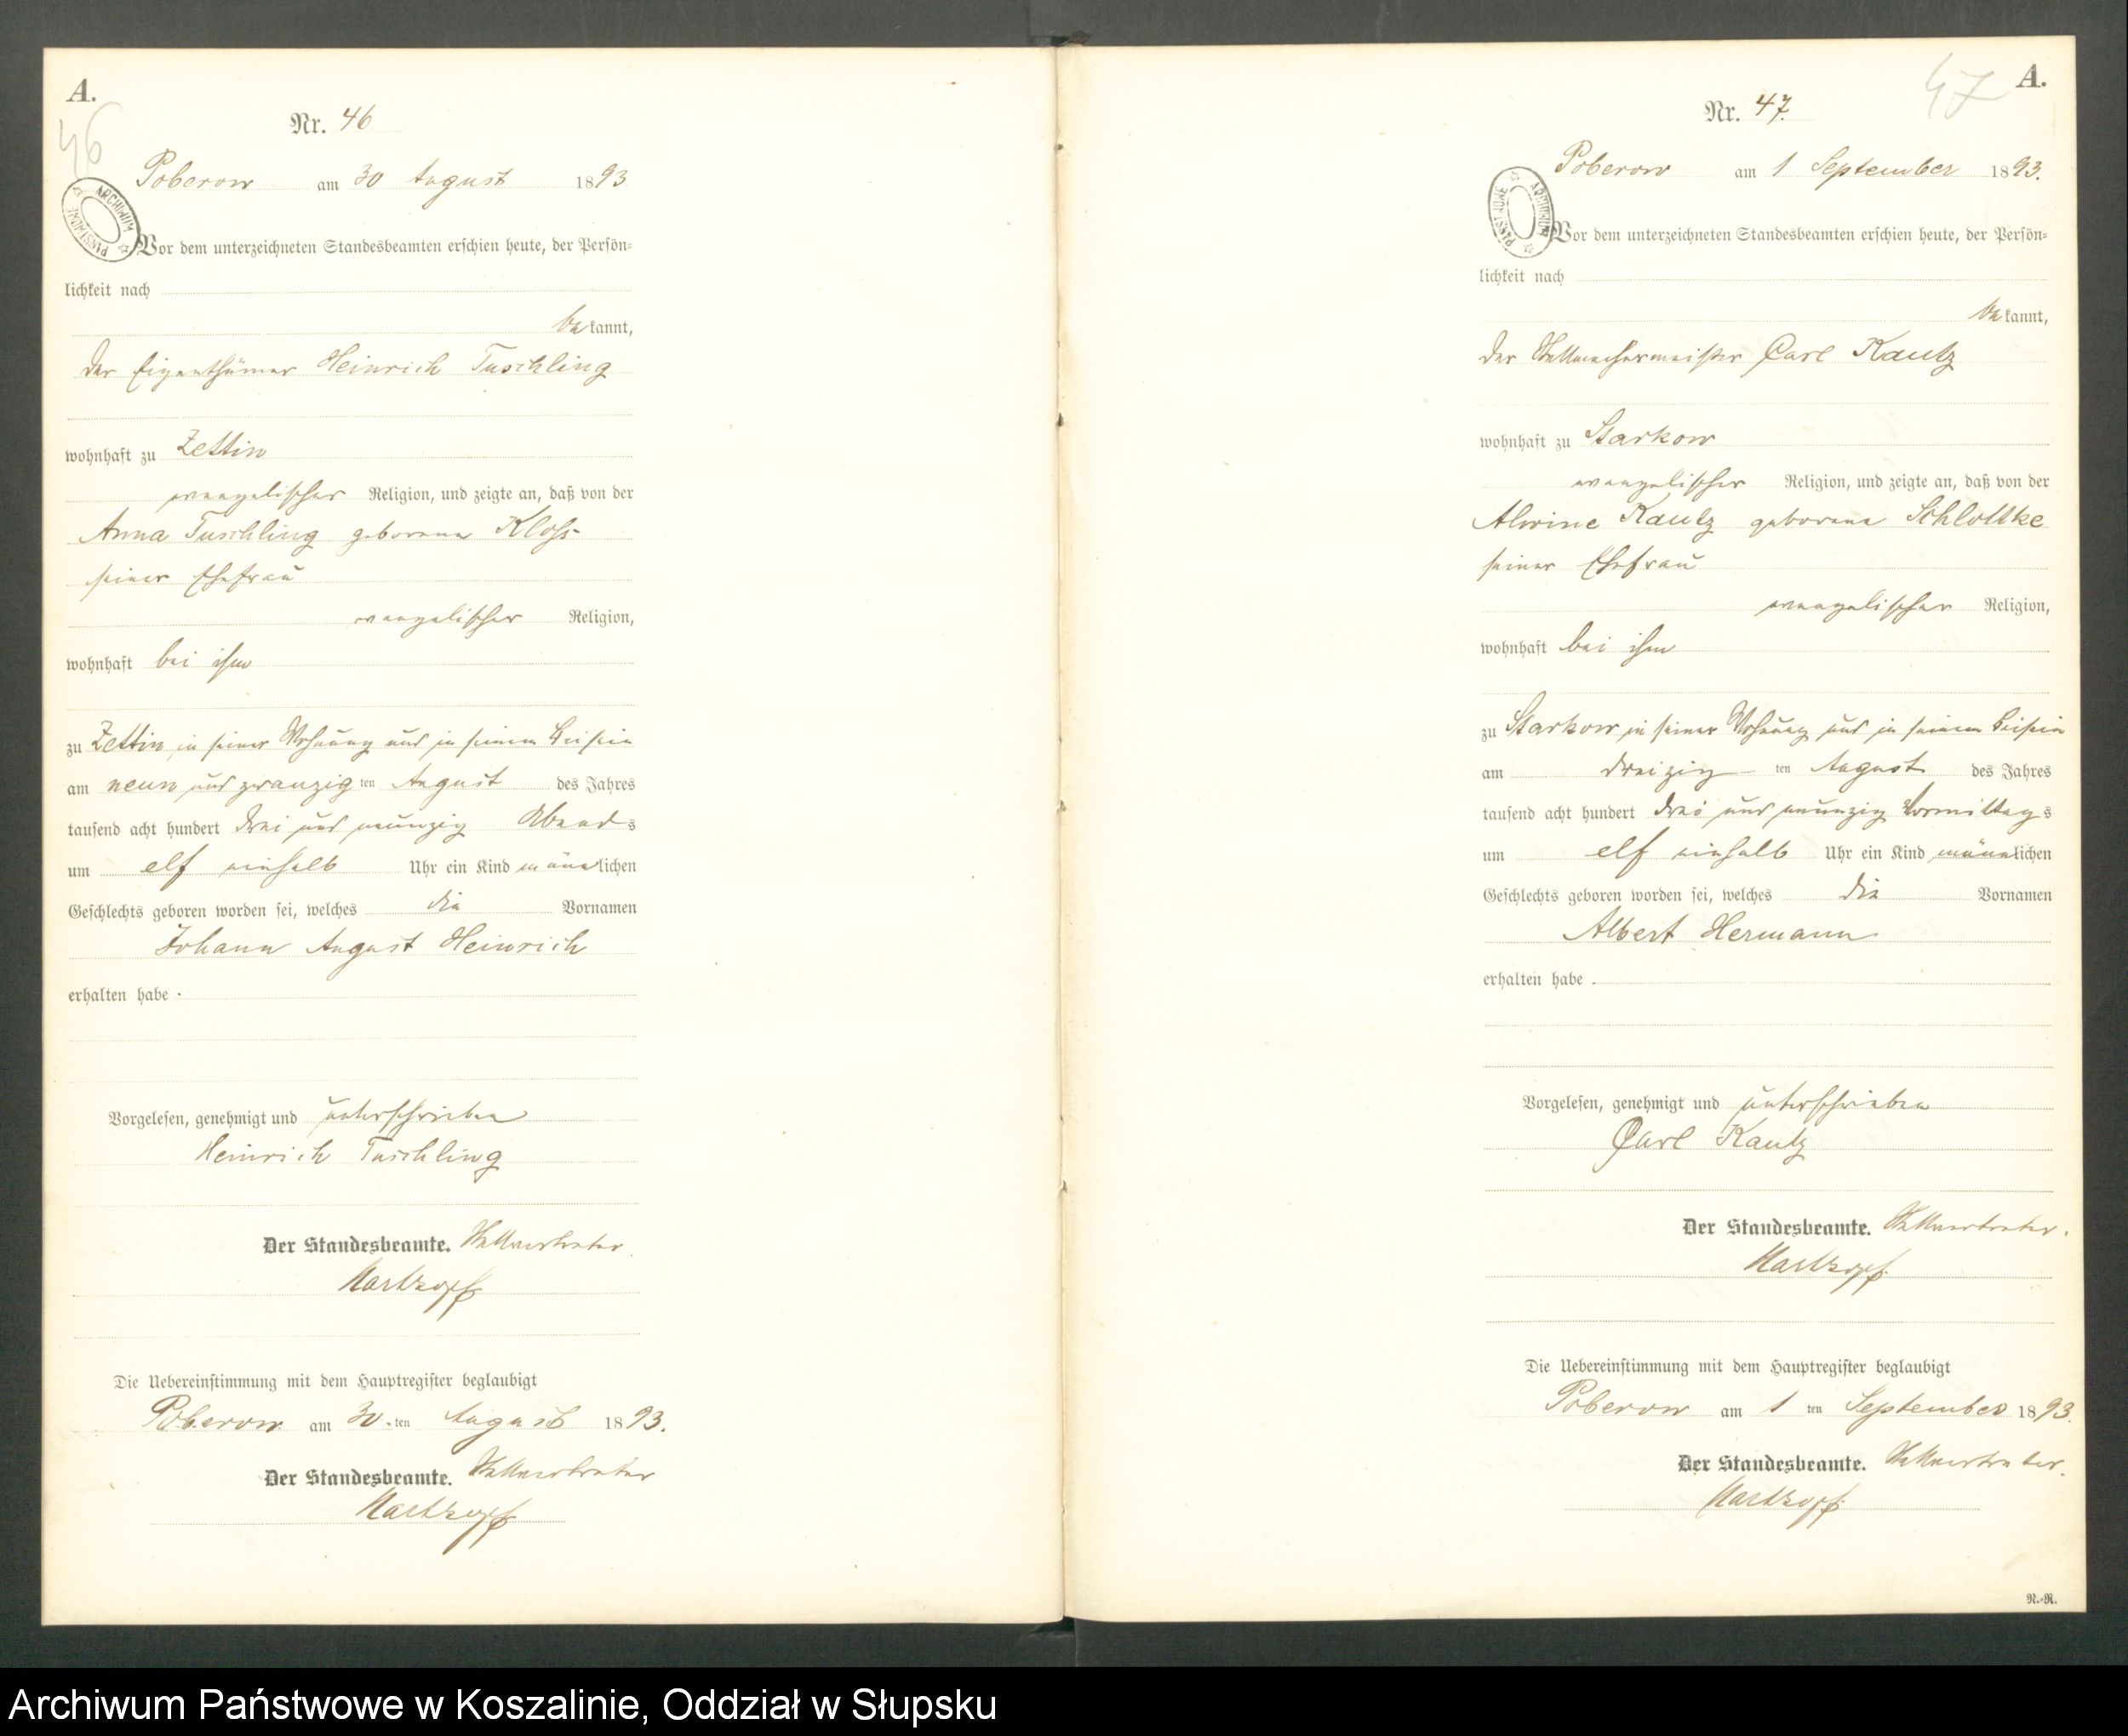 A.
46
Nr. 46
Poberow am 30 August 1893
ARCHIWUM PAŃSTWOWE
Vor dem unterzeichneten Standesbeamten erschien heute, der Persön=
lichkeit nach
bekannt,
der Eigenthümer Heinrich Tuschling
wohnhaft zu Zettin
evangelischer Religion, und zeigte an, daß von der
Anna Tuschling geborenen Kloß
seiner Ehefrau
evangelischer Religion,
wohnhaft bei ihm
zu Zettin in seiner Wohnung und in seinem Beisein
am neun und zwanzig ten August des Jahres
tausend acht hundert drei und neunzig Abends
um elf einhalb Uhr ein Kind männlichen
Geschlechts geboren worden sei, welches die Vornamen
Johann August Heinrich
erhalten habe.
Vorgelesen, genehmigt und unterschrieben
Heinrich Tuschling
Der Standesbeamte. Stellvertreter.
Die Uebereinstimmung mit dem Hauptregister beglaubigt
Poberow am 30.ten August 1893.
Der Standesbeamte. Stellvertreter
47 A.
Nr. 47.
Poberow am 1 September 1893.
ARCHIWUM PAŃSTWOWE
Vor dem unterzeichneten Standesbeamten erschien heute, der Persön=
lichkeit nach
bekannt,
der Stellmachermeister Carl Kautz
wohnhaft zu Starkow
evangelischer Religion, und zeigte an, daß von der
Alwine Kautz geborene Schlottke
seiner Ehefrau
evangelischer Religion,
wohnhaft bei ihm
zu Starkow in seiner Wohnung und in seinem Beisein
am dreizig ten August des Jahres
tausend acht hundert drei und neunzig Vormittags
um elf einhalb Uhr ein Kind männlichen
Geschlechts geboren worden sei, welches die Vornamen
Albert Hermann
erhalten habe.
Vorgelesen, genehmigt und unterschrieben
Carl Kautz
Der Standesbeamte. Stellvertreter.
Die Uebereinstimmung mit dem Hauptregister beglaubigt
Poberow am 1 ten September 1893.
Der Standesbeamte. Stellvertreter.
N.=R.
Archiwum Państwowe w Koszalinie, Oddział w Słupsku